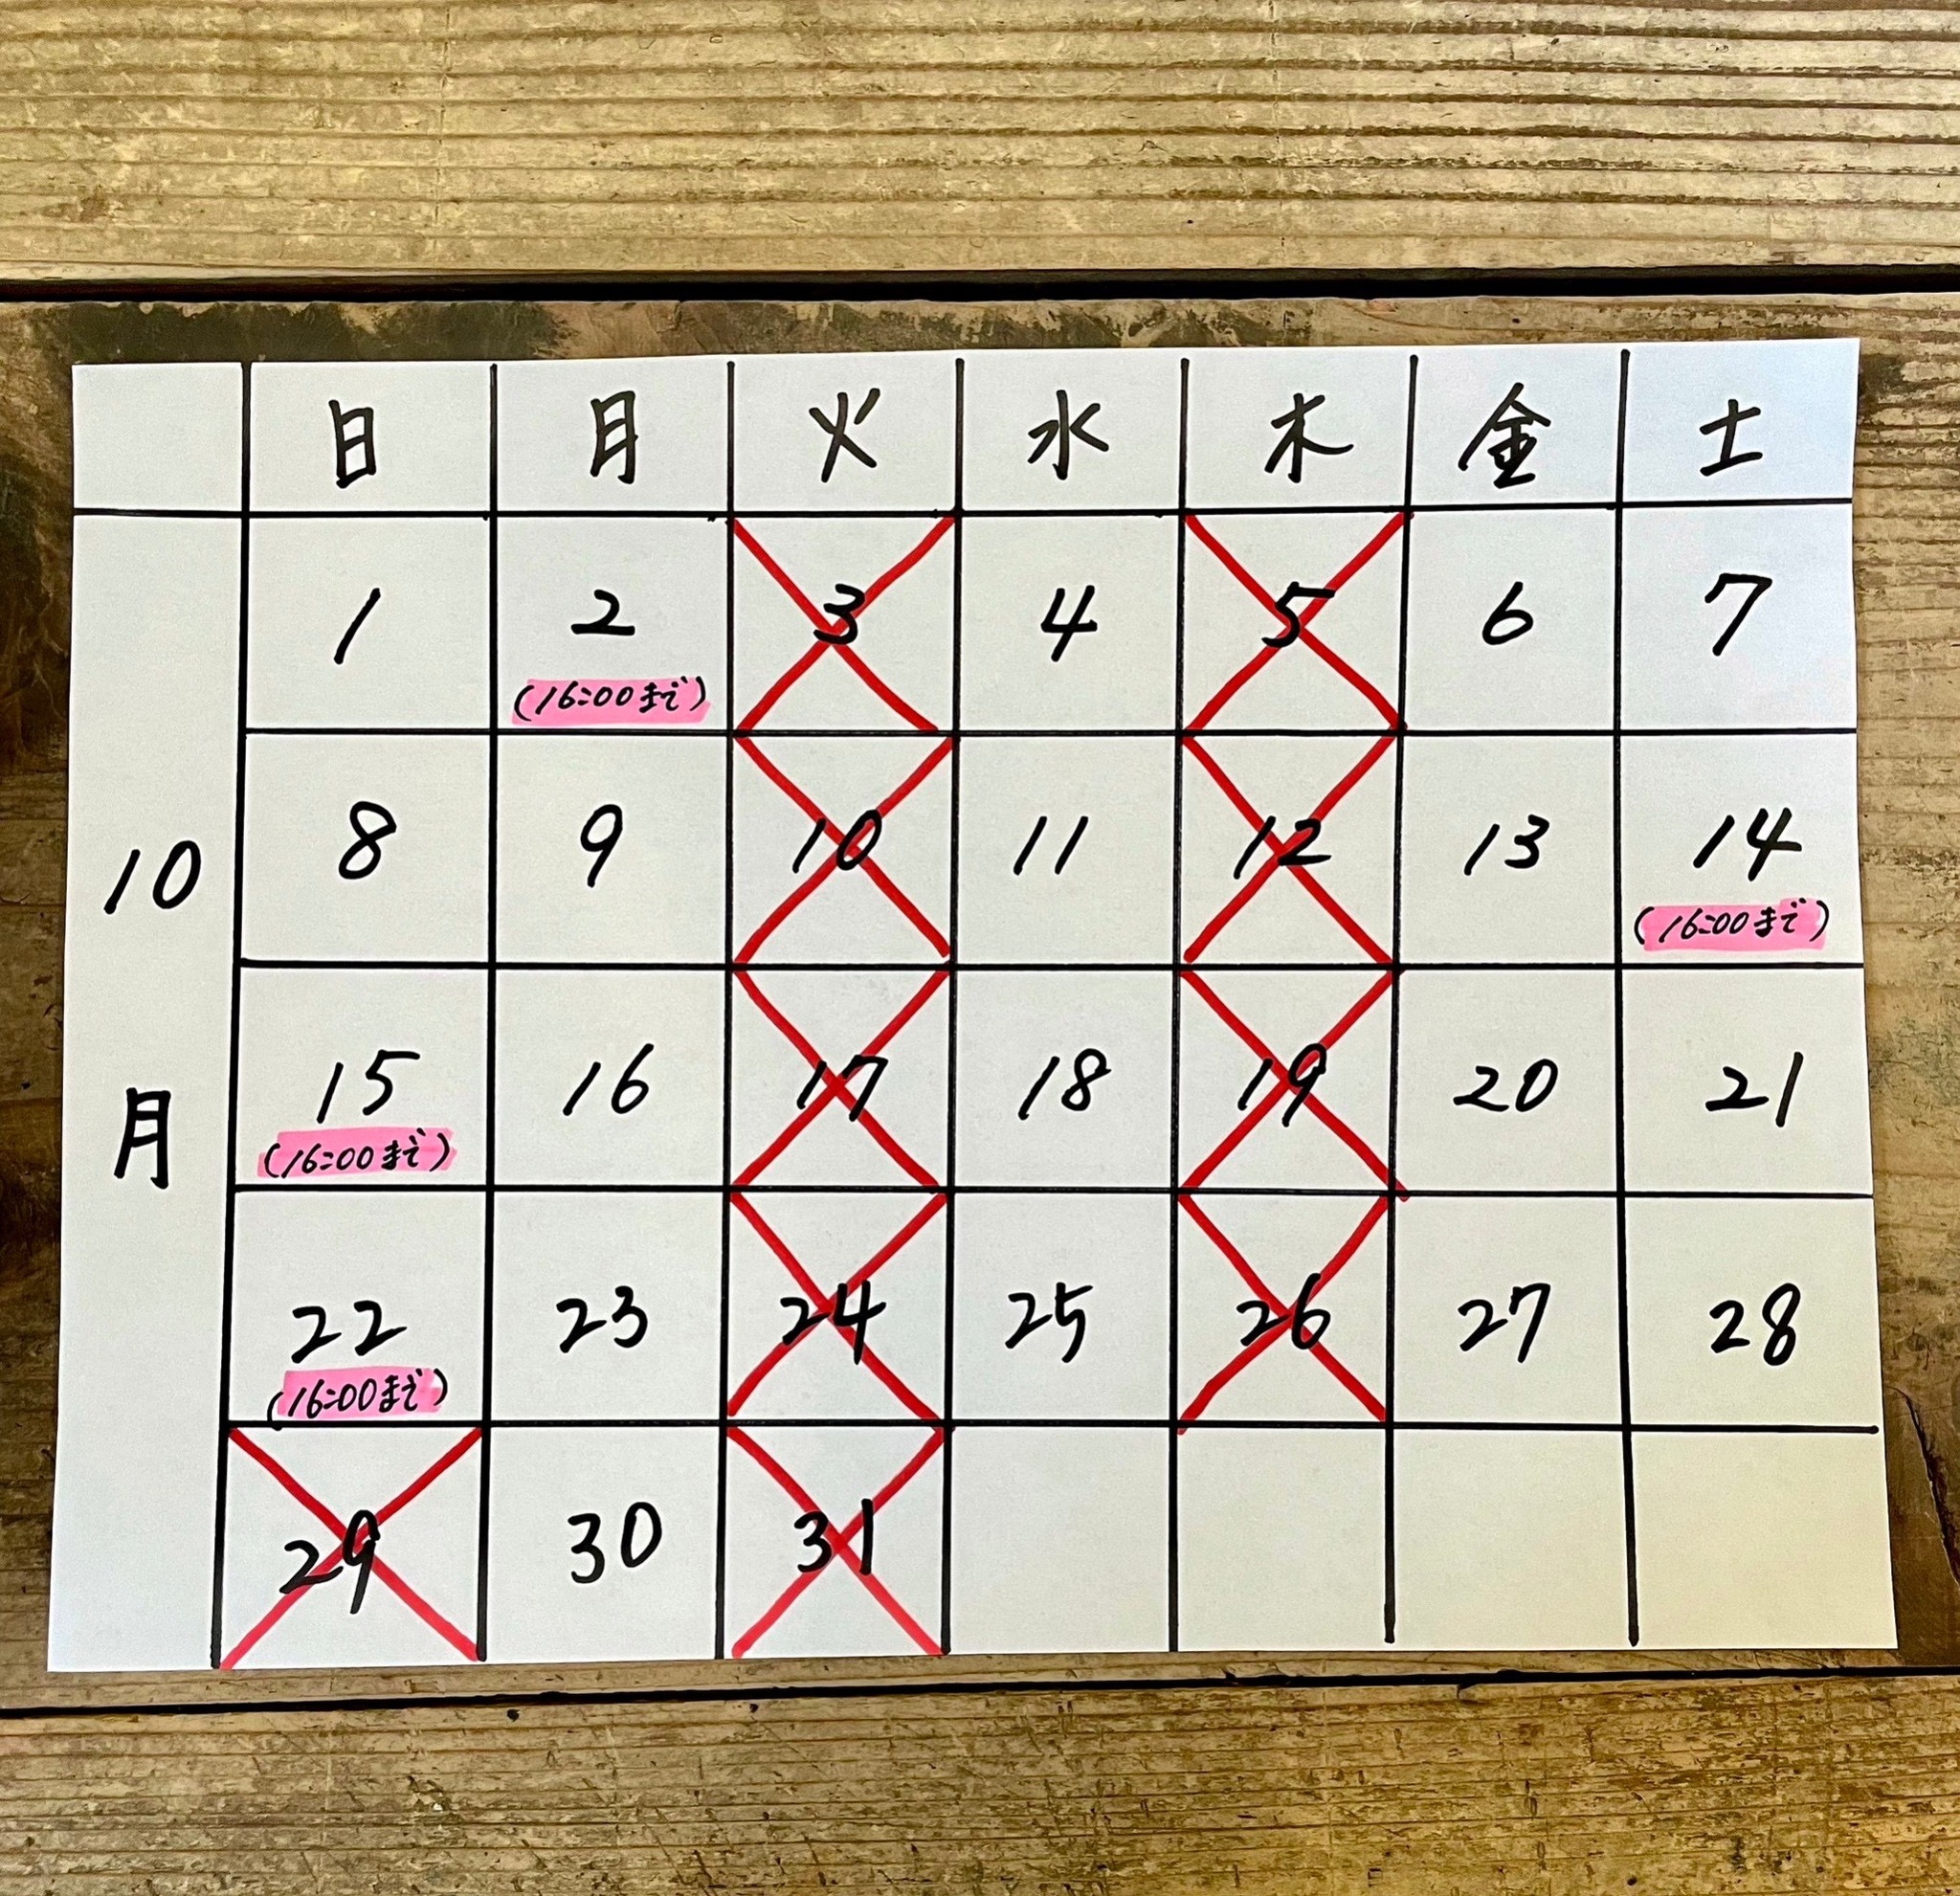 日 月 火 水 木 金 土
10月
1 2 3 4 5 6 7
(16:00まで)
8 9 10 11 12 13 14
(16:00まで)
15 16 17 18 19 20 21
(16:00まで)
22 23 24 25 26 27 28
(16:00まで)
29 30 31